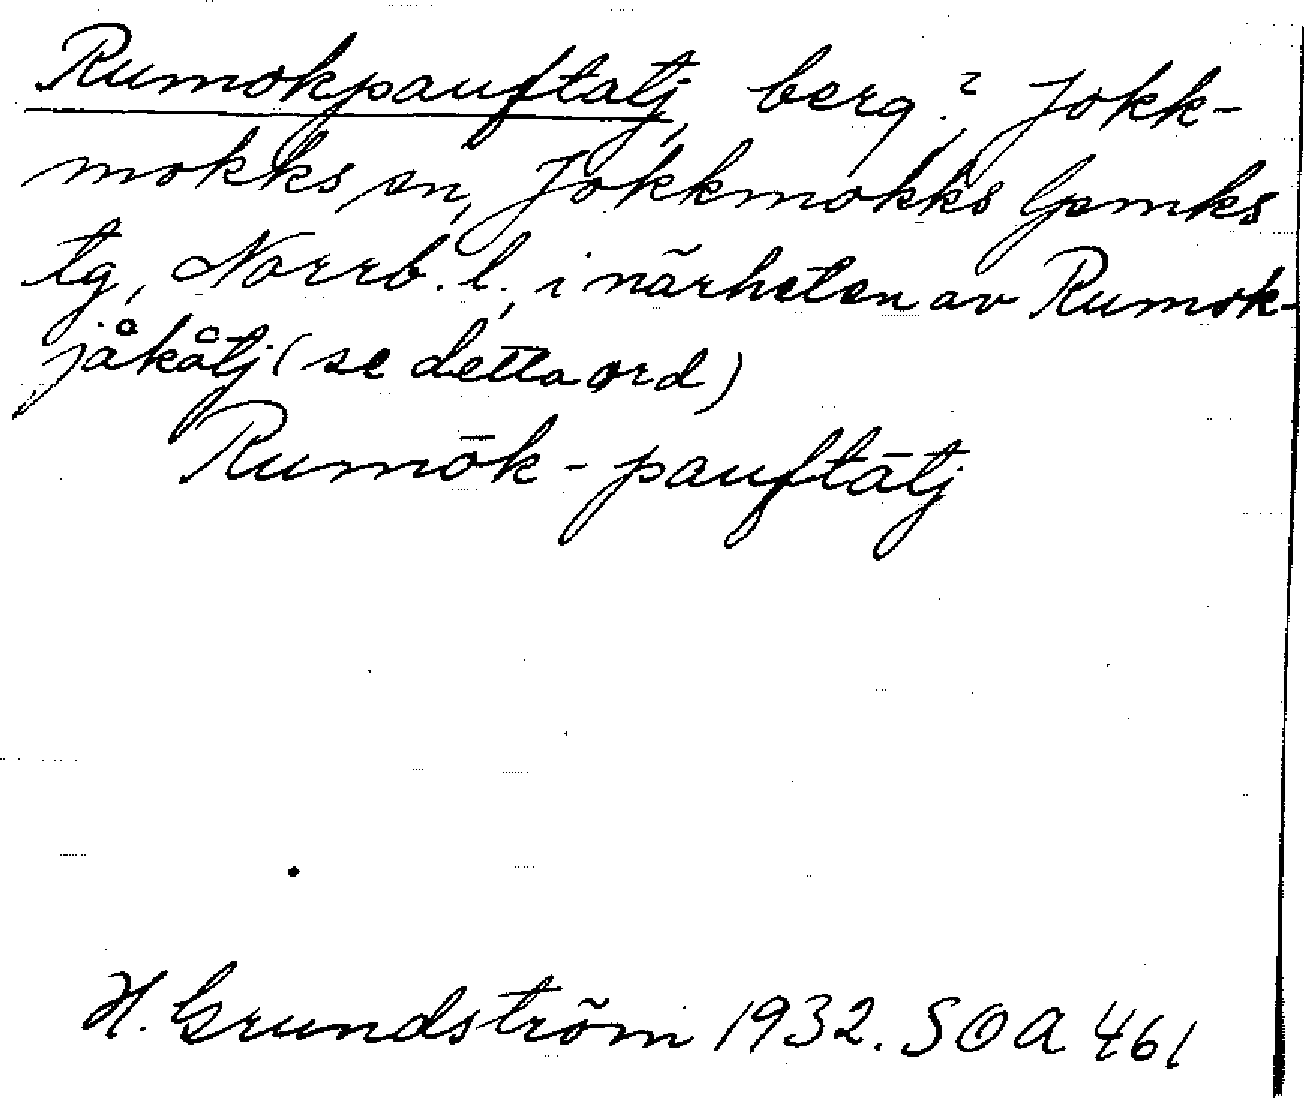 Rumokpauftatj, berg? Jokk-
mokks sn, Jokkmokks lpmks
tg, Norrb. l., i närheten av Rumok-
jåkåtj (se detta ord)
Rumōk-pauftātj
H. Grundström 1932. SOA 461